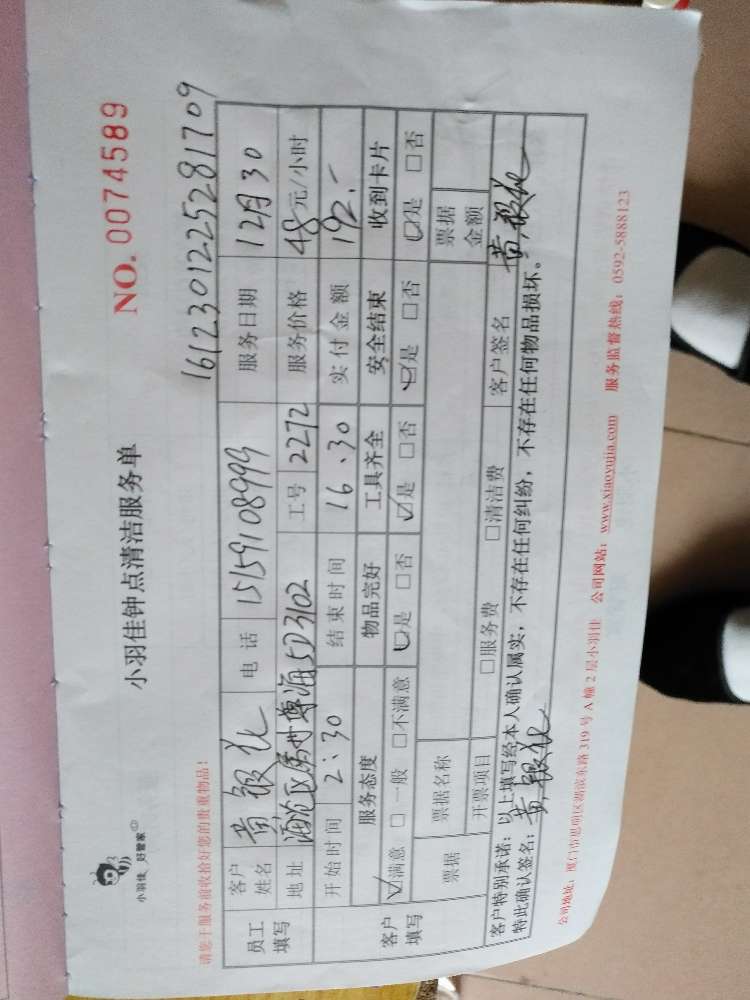 小羽佳 好管家
小羽佳钟点清洁服务单
NO. 0074589
请您于服务前收拾好您的贵重物品!
1612301225281709
员工填写 客户姓名 黄银花 电话 15159108999 服务日期 12月30
地址 海沧区 博海5D3102 工号 2272 服务价格 48元/小时
开始时间 2:30 结束时间 16、30 实付金额 192.-
客户填写 服务态度 物品完好 工具齐全 安全结束 收到卡片
☑满意 □一般 □不满意 ☑是 □否 ☑是 □否 ☑是 □否 ☑是 □否
票据 票据名称 票据金额
开票项目 □服务费 □清洁费 客户签名 黄银花
客户特别承诺:以上填写经本人确认属实,不存在任何纠纷,不存在任何物品损坏。
特此确认签名:黄银花
公司地址:厦门市思明区湖滨东路319号A幢2层小羽佳 公司网站:www.xiaoyujia.com 服务监督热线:0592-5888123